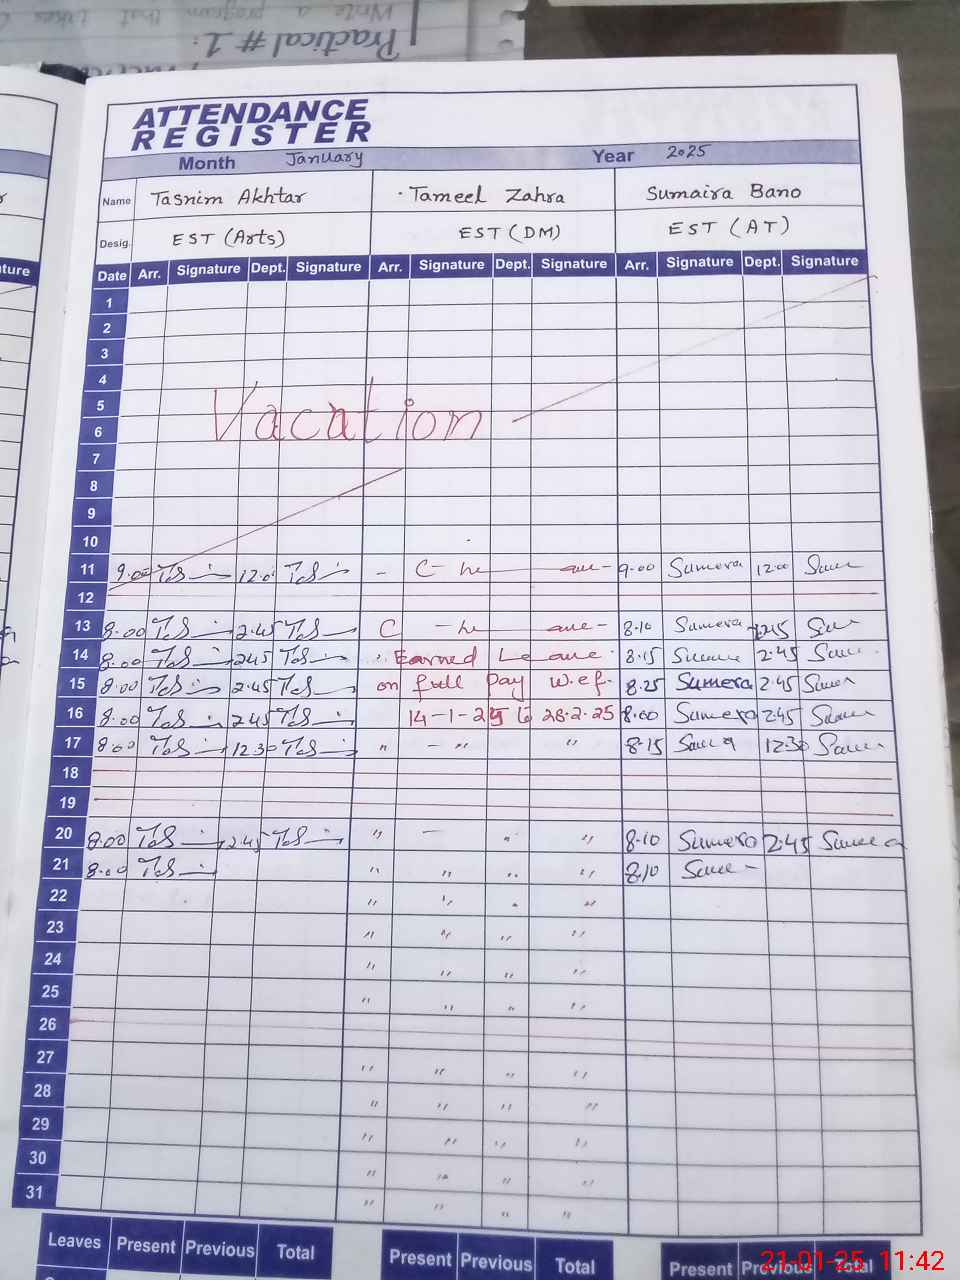 Write a program that takes
Practical # 1:
ATTENDANCE
REGISTER
Month January Year 2025
Name Tasnim Akhtar Tameel Zahra Sumaira Bano
Desig. EST (Arts) EST (DM) EST (AT)
Date Arr. Signature Dept. Signature Arr. Signature Dept. Signature Arr. Signature Dept. Signature
1
2
3
4
5
Vacation
6
7
8
9
10
11 9.00 TaS 12.0 TaS - C - le ave - 9.00 Sumera 12.00
12
13 8.00 TaS 2.45 TaS C - le ave - 8.10 Sumera 2.45
14 8.00 TaS 2.45 TaS Earned Leave 8.15 2.45
15 8.00 TaS 2.45 TaS on full Pay w.e.f. 8.25 Sumera 2.45
16 8.00 TaS 2.45 TaS 14-1-25 to 28.2.25 8.00 Sumera 2.45
17 8.00 TaS 12.30 TaS " - " " 8.15 12.30
18
19
20 8.00 TaS 2.45 TaS " - " " 8.10 Sumera 2.45
21 8.00 TaS " " " " 8.10
22 " " " "
23 " " " "
24 " " " "
25 " " " "
26
27 " " " "
28 " " " "
29 " " " "
30 " " " "
31 " " " "
Leaves Present Previous Total Present Previous Total Present Previous Total
21-01-25 11:42